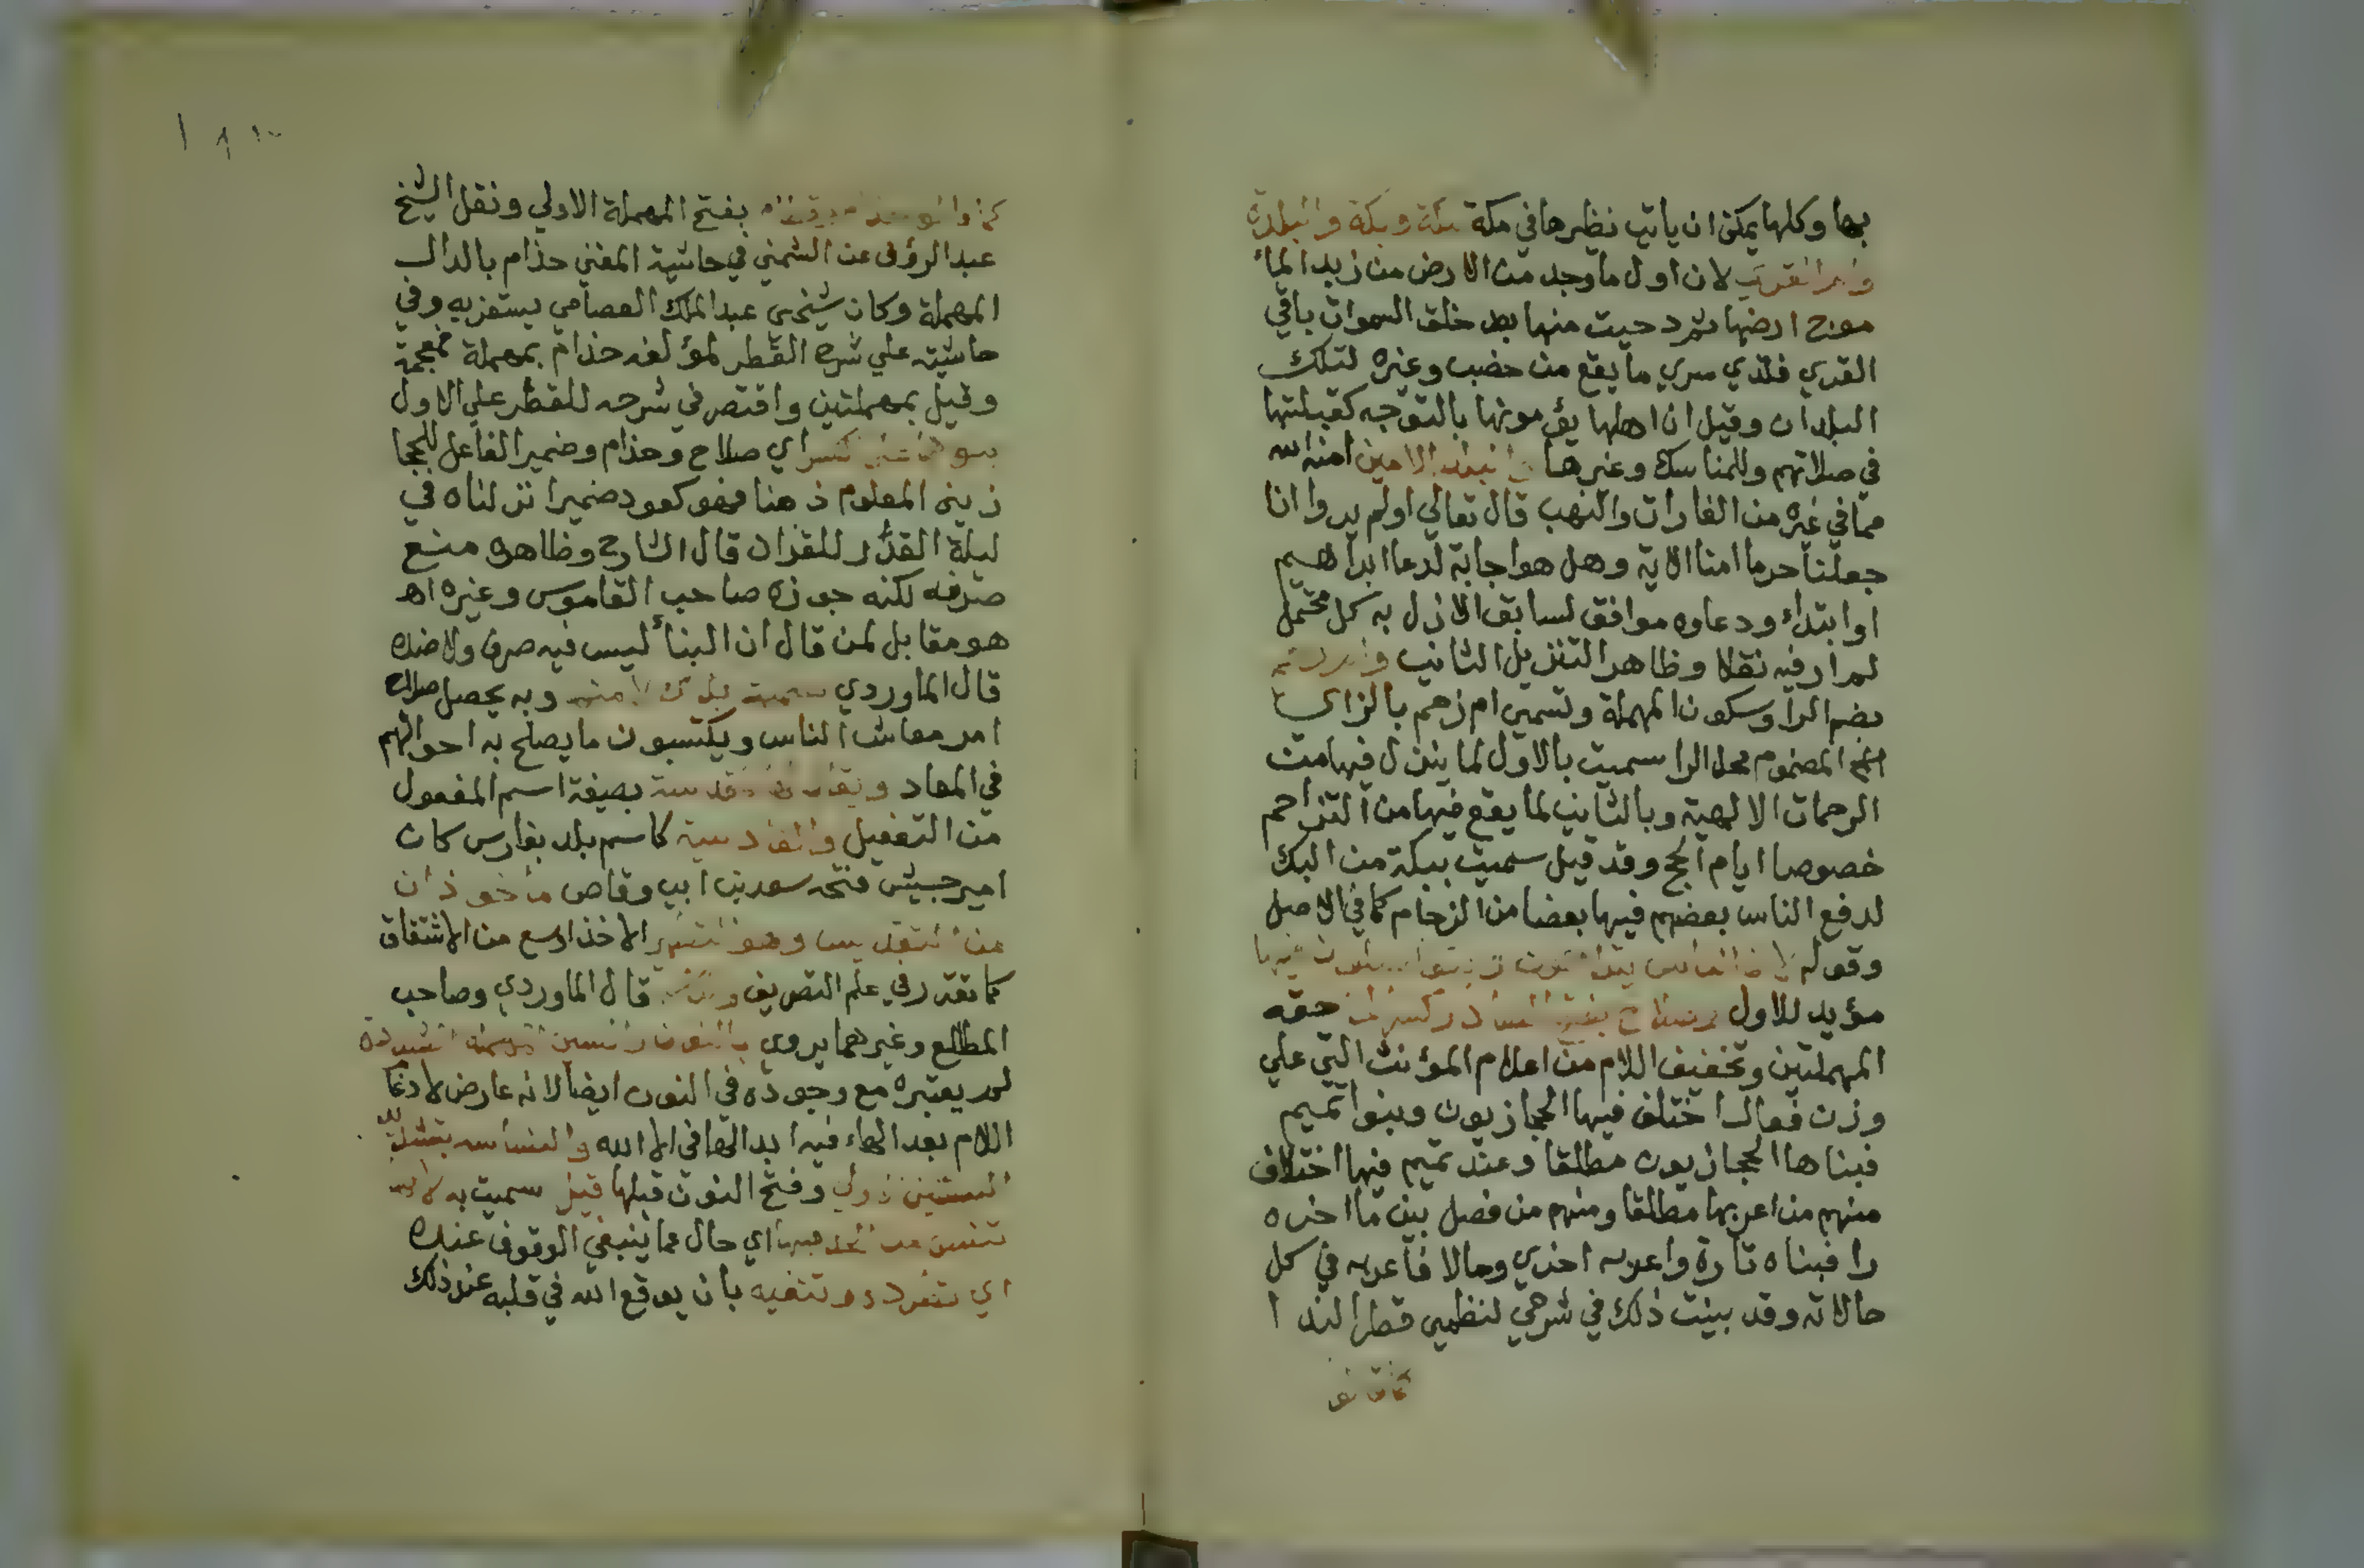 بها وكلها يمكن ان ياتي نظيرها في مكة مكة وبكة والبلدة
وام القرى لان اول ما وجد من الارض من زبد الماء
موضع ارضها ثم دحيت منها بعد خلق السموات باقي
القري فلذي سري ما يقع من خصب وغيره لتلك
البلدان وقيل ان اهلها يؤمونها بالتوجه كقبلتها
في صلاتهم وللمناسك وغيرها والبلد الامين امنه الله
مما في غيره من الغارات والنهب قال تعالي اولم يروا انا
جعلنا حرما امنا الاية وهل هو اجابة لدعا ابراهيم
او ابتداء ودعاوه موافق لسابق الازل به كل محتمل
لم ار فيه نقلا وظاهر التنزيل الثاني وام رحم
بضم الرا وسكون المهملة وتسمي ام زحم بالزاي
المضموم محل الرا سميت بالاول لما ينزل فيها من
الرحمات الالهية وبالثاني لما يقع فيها من التزاحم
خصوصا ايام الحج وقد قيل سميت ببكة من البك
لدفع الناس بعضهم فيها بعضا من الزحام كما في الاصل
وقوله لان الناس فيها
مؤيد للاول وصلاح بفتح الصاد وكسر حقه
المهملتين وتخفيف اللام من اعلام المؤنث التي علي
وزن فعال اختلف فيها الحجازيون وبنوا تميم
فبناها الحجازيون مطلقا وعند تميم فيها اختلاف
منهم من اعربها مطلقا ومنهم من فصل بين ما اخره
را فبناه تارة واعربه اخري وحالا فاعربه في كل
حالاته وقد بينت ذلك في شرحي لنظمي قطر الندا
كانو
كانوا بفتح المهملة الاولي ونقل الشيخ
عبد الرؤف عن الشمني في حاشية المغني حذام بالدال
المهملة وكان شيخي عبد الملك العصامي يستغربه وفي
حاشيته علي شرح القطر لمؤلفه حذام بمهملة فمعجمة
وقيل بمهملتين واقتصر في شرحه للقطر علي الاول
كسر اي صلاح وحذام وضمير الفاعل للحجا
زيين المعلوم ذهنا فهو كعود ضمير انزلناه في
ليلة القدر للقران قال الشارح وظاهره منع
صرفه لكنه جوزه صاحب القاموس وغيره اه
هو مقابل لمن قال ان البنأ ليس فيه صرف ولا ضده
قال الماوردي سميت بذلك لامنها وبه يحصل صلاح
امر معاش الناس ويكتسبون ما يصلح به احوالهم
في المعاد ويقال مقدسة بصيغة اسم المفعول
من التفعيل والقادسية كاسم بلد بفارس كان
امير جيش فتحه سعد بن ابي وقاص مأخوذان
من التقديس وهو التطهير الاخذ اوسع من الاشتقاق
كما تقرر في علم التصريف قال الماوردي وصاحب
المطالع وغيرهما يروي بالنون والسين المهملة المشددة
لم يعتبره مع وجوده في النون ايضا لانه عارض لادغا
اللام بعد الهاء فيه ابدالها في الا الله والنساسه بتثليث
السينين وفتح النون قبلها قيل سميت به لانها
تنس من الحد فيها اي حال مما ينبغي الوقوف عنده
اي تطرده وتنفيه بان يوقع الله في قلبه عند ذلك